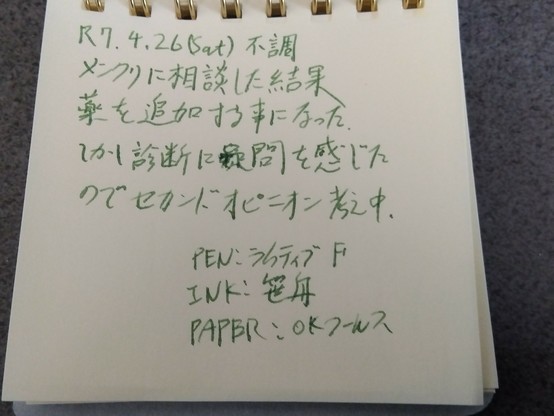 R7.4.26(Sat) 不調
メンクリに相談した結果
薬を追加する事になった.
しかし診断に疑問を感じた
のでセカンドオピニオン考え中.
PEN:ライティブ F
INK:笹舟
PAPER:OKフールス